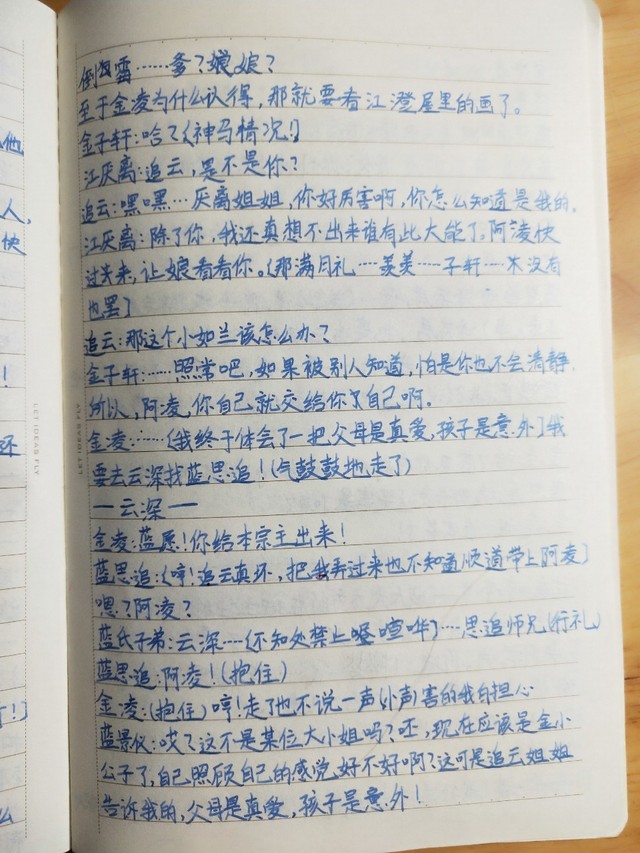 倒霉……爹？娘娘？
至于金凌为什么认得，那就要看江澄屋里的画了。
金子轩：哈？（神马情况！］
江厌离：追云，是不是你？
追云：嘿嘿…厌离姐姐，你好厉害啊，你怎么知道是我的。
江厌离：除了你，我还真想不出来谁有此大能了。阿凌快
过来，让娘看看你。（那满月礼……羡羡……子轩……不没有
也罢］
追云：那这个小如兰该怎么办？
金子轩：……照常吧，如果被别人知道，怕是你也不会清静，
所以，阿凌，你自己就交给你自己啊。
金凌：……（我终于体会了一把父母是真爱，孩子是意外］我
要去云深找蓝思追！（气鼓鼓地走了）
一云深一
金凌：蓝愿！你给本宗主出来！
蓝思追：（哼！追云真坏，把我弄过来也不知道顺道带上阿凌］
嗯？阿凌？
蓝氏子弟：云深……（不知处禁止喧哗］…思追师兄（行礼）
蓝思追：阿凌！（抱住）
金凌：（抱住）哼！走了也不说一声（小声）害的我白担心
蓝景仪：哎？这不是某位大小姐吗？呸，现在应该是金小
公子了，自己照顾自己的感觉好不好啊？这可是追云姐姐
告诉我的，父母是真爱，孩子是意外！
他
人，
快
！
还
了！］
么
LET IDEAS FLY